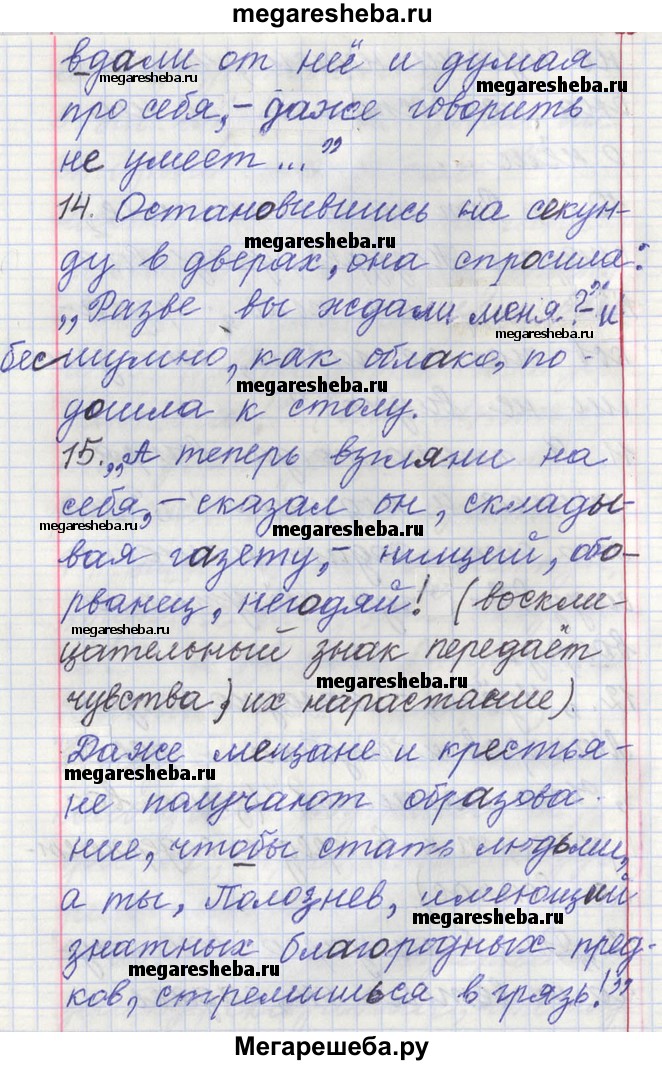 megaresheba.ru
вдали от неё и думая
megaresheba.ru megaresheba.ru
про себя, – даже говорить
не умеет ..."
14. Остановившись на секун-
megaresheba.ru
ду в дверях, она спросила:
„Разве вы ждали меня?" – и
megaresheba.ru
бесшумно, как облако, по-
megaresheba.ru
дошла к столу.
15. „А теперь взгляни на
себя, – сказал он, склады-
megaresheba.ru megaresheba.ru
вая газету, – нищий, обо-
рванец, негодяй! (воскли-
megaresheba.ru
цательный знак передаёт
megaresheba.ru
чувства, их нарастание).
Даже мещане и крестья-
megaresheba.ru
не получают образова-
ние, чтобы стать людьми,
megaresheba.ru
а ты, Полознев, имеющий
megaresheba.ru
знатных благородных пред-
megaresheba.ru
ков, стремишься в грязь!"
megaresheba.ru
Мегарешеба.ру